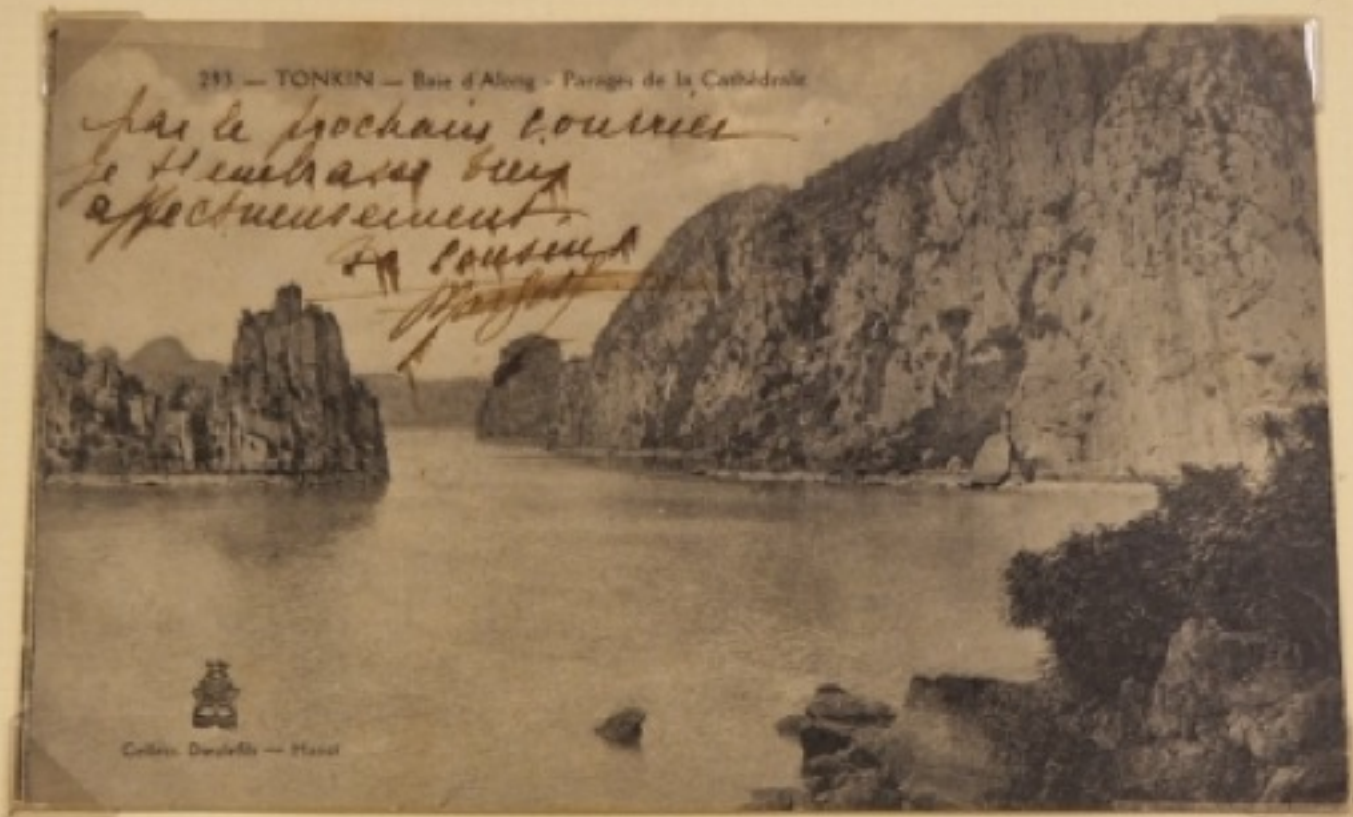 293 — TONKIN — Baie d'Along - Parages de la Cathédrale
par le prochain courrier
je t'embrasse bien
affectueusement.
ta cousine
Collion. Dieulefils — Hanoï